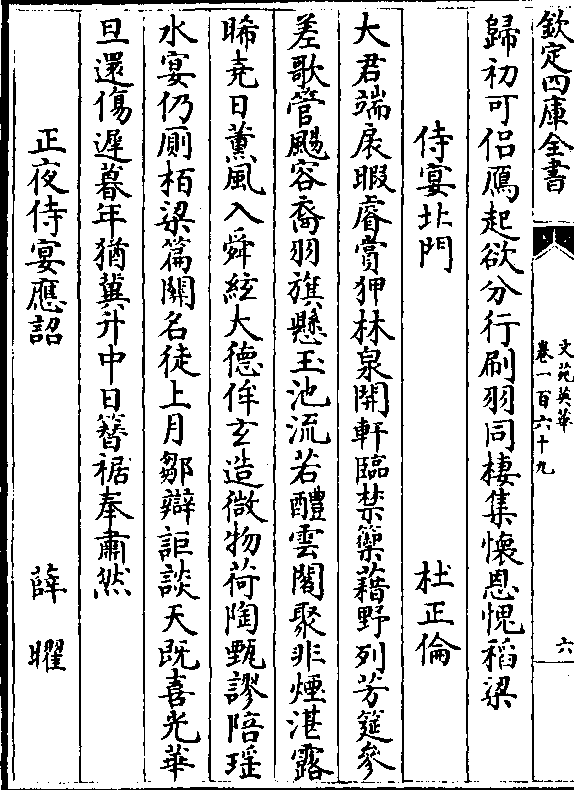 欽定四庫全書
文苑英華
卷一百六十九
六
歸初可侣鴈起欲分行刷羽同棲集懷恩愧稻梁
侍宴北門
杜正倫
大君端扆暇睿賞狎林泉開軒臨禁籞藉野列芳筵參
差歌管颺容裔羽旗懸玉池流若醴雲閣聚非煙湛露
晞堯日薰風入舜絃大德侔玄造微物荷陶甄謬陪瑶
水宴仍厠栢梁篇闞名徒上月鄒辯詎談天既喜光華
旦還傷遲暮年猶冀升中日簪裾奉肅然
正夜侍宴應詔
薛曜